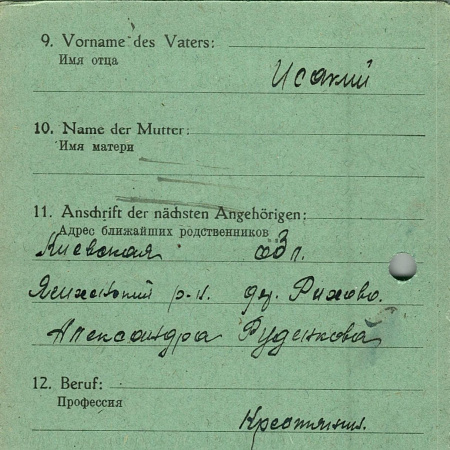 9. Vorname des Vaters:
Имя отца
Исакий
10. Name der Mutter:
Имя матери
11. Anschrift der nächsten Angehörigen:
Адрес ближайших родственников
Киевская обл.
р-н. Рихово.
Александра Руденкова
12. Beruf:
Профессия
Крестьянин.